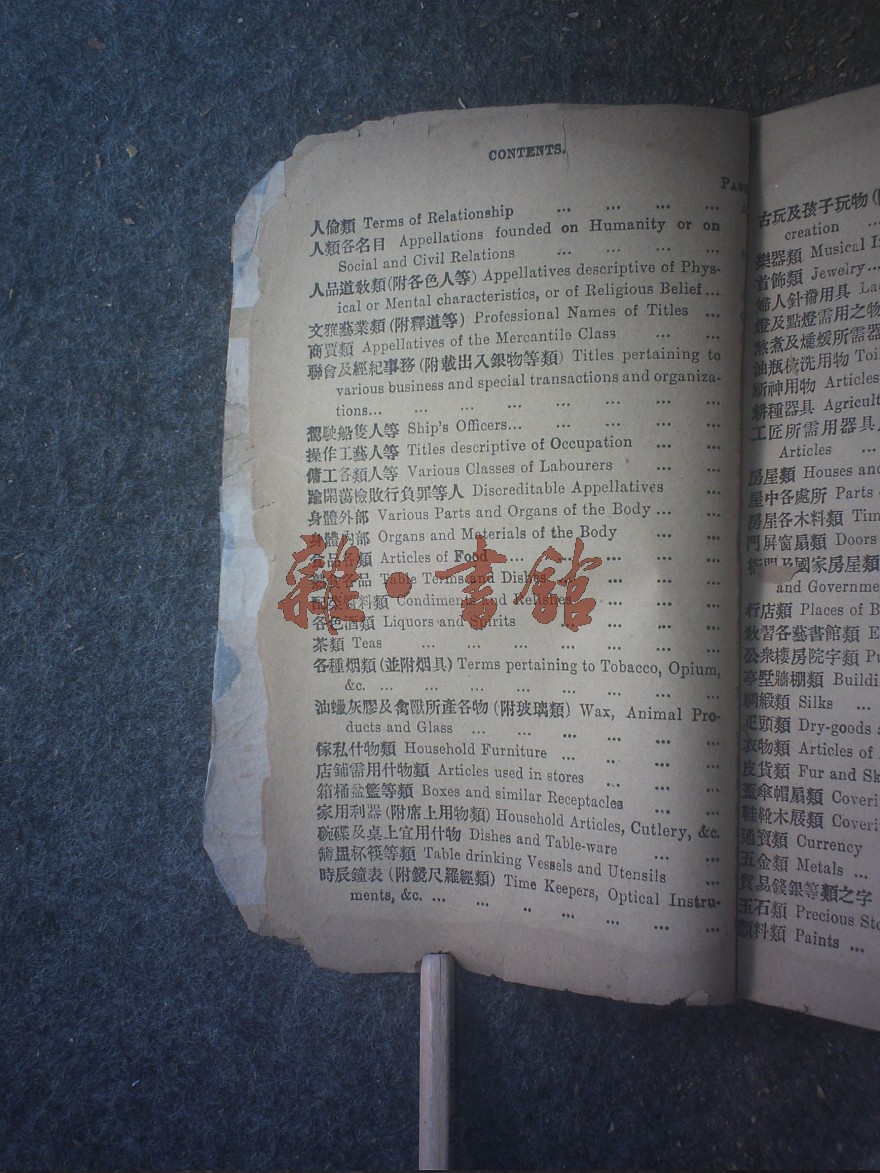 CONTENTS.
人倫類 Terms of Relationship ... ... ... ...
人類各名目 Appellations founded on Humanity or on
Social and Civil Relations ... ... ... ...
人品道敎類(附各色人等) Appellatives descriptive of Phys-
ical or Mental characteristics, or of Religious Belief...
文雅藝業類(附釋道等) Professional Names of Titles ...
商賈類 Appellatives of the Mercantile Class ... ...
聯會及經紀事務(附載出入銀物等類) Titles pertaining to
various business and special transactions and organiza-
tions... ... ... ... ... ... ... ...
駕駛船隻人等 Ship's Officers... ... ... ... ...
操作工藝人等 Titles descriptive of Occupation ... ...
傭工各類人等 Various Classes of Labourers ... ...
踰閑蕩檢敗行負罪等人 Discreditable Appellatives ...
身體外部 Various Parts and Organs of the Body ... ...
身體內部 Organs and Materials of the Body ... ...
食品各類 Articles of Food ... ... ... ...
各品 Table Terms and Dishes ... ... ... ...
類 Condiments and Relishes ... ... ...
各色酒類 Liquors and Spirits ... ... ...
茶類 Teas ... ... ... ... ... ...
各種烟類(並附烟具) Terms pertaining to Tobacco, Opium,
&c. ... ... ... ... ... ... ...
油蠟灰膠及禽獸所產各物(附玻璃類) Wax, Animal Pro-
ducts and Glass ... ... ... ... ... ...
傢私什物類 Household Furniture ... ... ... ...
店鋪需用什物類 Articles used in stores ... ... ...
箱桶盆籃等類 Boxes and similar Receptacles ... ...
家用利器(附席上用物類) Household Articles, Cutlery, &c.
碗碟及桌上宜用什物 Dishes and Table-ware ... ...
杯筷等類 Table drinking Vessels and Utensils ...
時辰鐘表(附鏡尺羅經類) Time Keepers, Optical Instru-
ments, &c. ... ... .. ... ... ... ... ...
古玩及孩子玩物
creation ...
樂器類 Musical
首飾類 Jewelry...
婦人針黹用具
燈及點燈需用之物
煮及燻煖所需器
油瓶梳洗用物
祈神用物 Articles
耕種器具
工匠所需用器具
Articles ...
房屋類 Houses and
屋中各處所 Parts
房屋各木料類
門屏窗扇類 Doors
及國家房屋類
and
行店類 Places of
敎習各藝書館類
公衆樓房院字類
亭墅牆棚類
綢緞類 Silks ...
疋頭類 Dry-goods
衣物類 Articles of
皮貨類 Fur and
傘帽扇類
鞋靴木屐類
通寶類 Currency
五金類 Metals ...
貿易錢銀等類之字
玉石類 Precious
顏料類 Paints ...
雜·書館